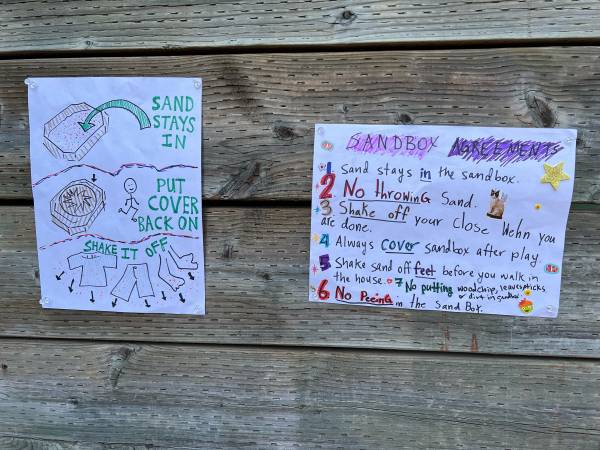 SAND
STAYS
IN
PUT
COVER
BACK ON
SHAKE IT OFF
SANDBOX AGREEMENTS
1 Sand stays in the sandbox.
2 No throwing Sand.
3 Shake off your Close Wehn you
are done.
4 Always cover sandbox after play
5 Shake sand off feet before you walk in
the house. 7 No putting woodchip, leaves, sticks
or dirt in
6 No Peeing in the Sand Box.